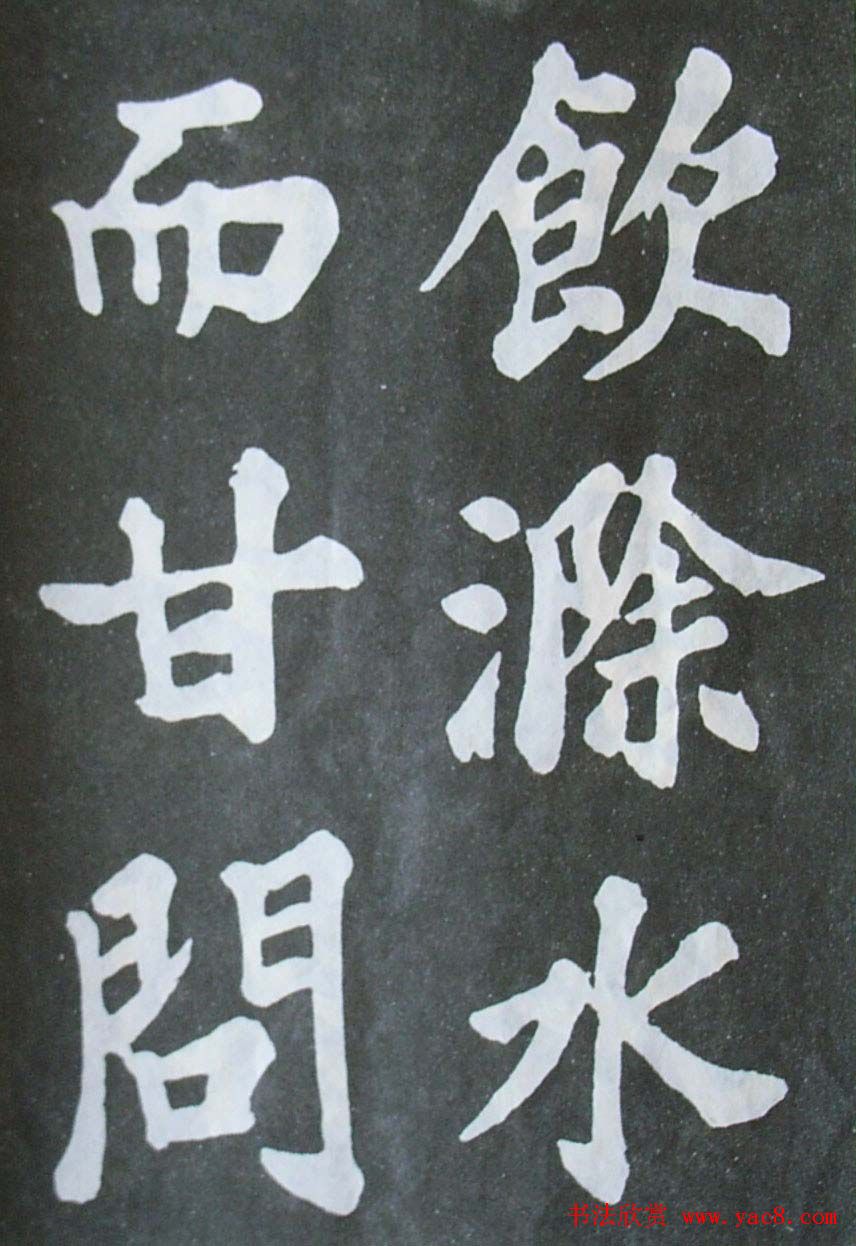 飲滁水
而甘問
书法欣赏 www.yac8.com